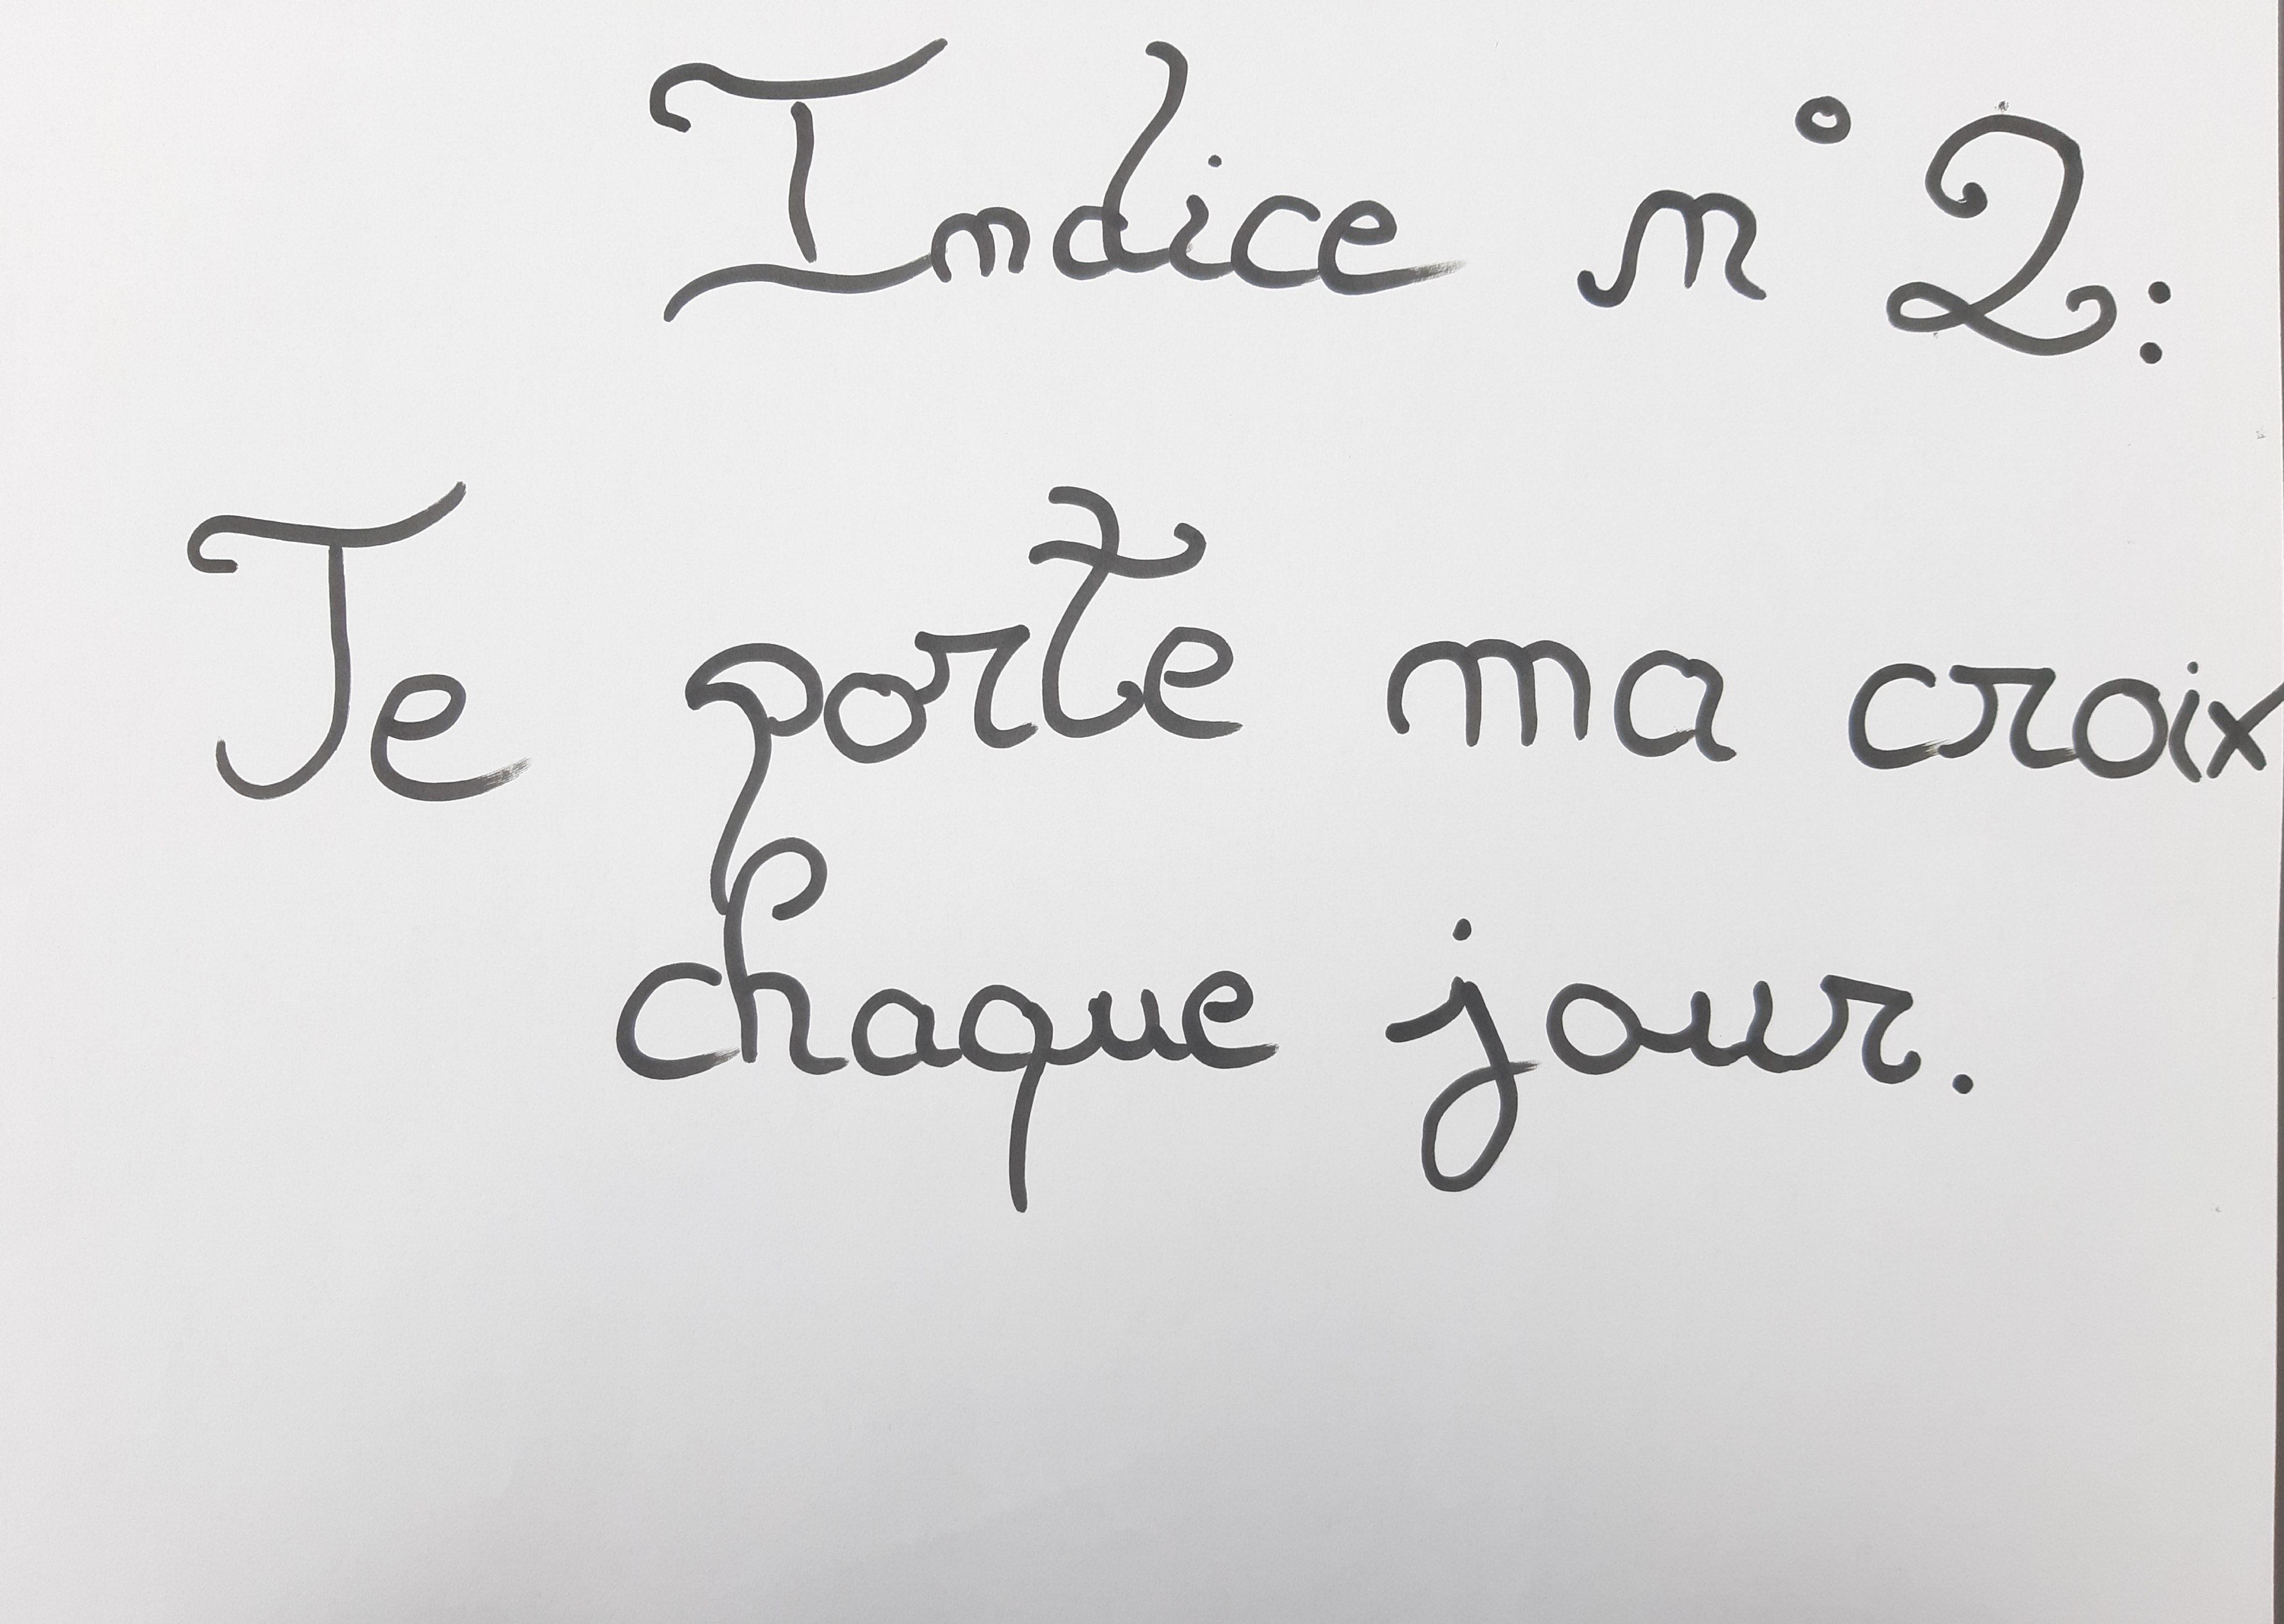 Indice n°2:
Je porte ma croix
chaque jour.